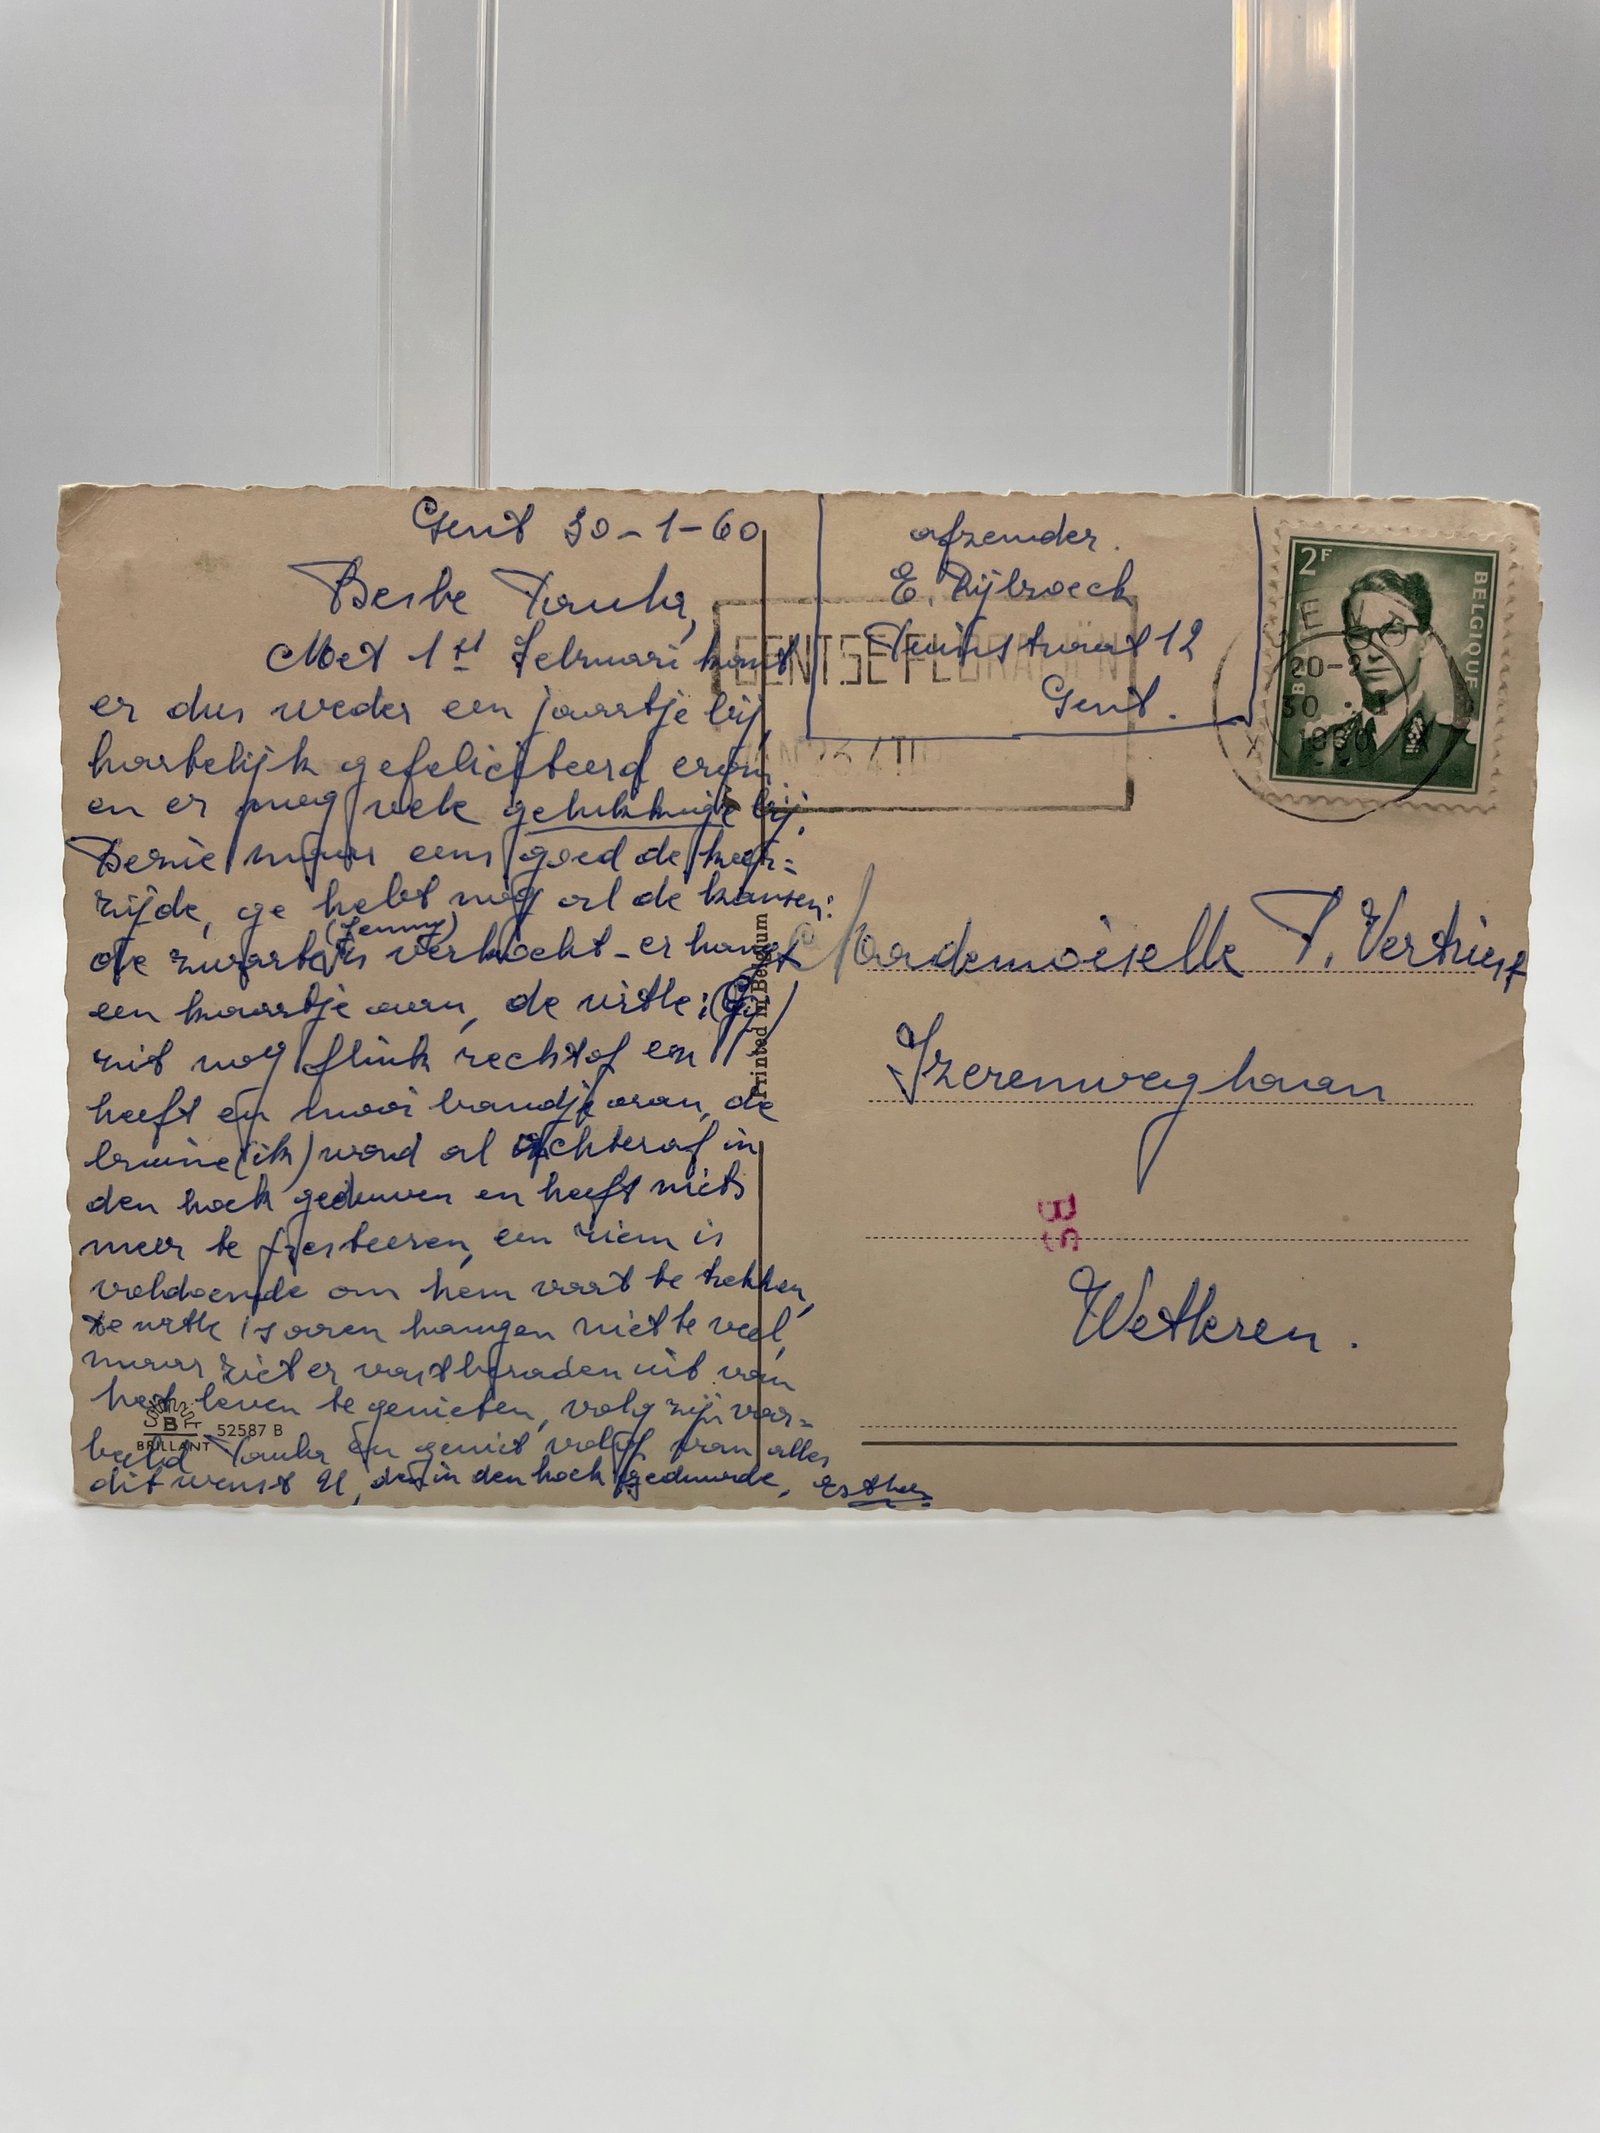 Gent 30-1-60
Beste Paula,
Met 1st Februari komt
er dus weder een jaartje bij,
hartelijk gefeliciteerd erom
en er mog vele gelukkige bij.
Bezie maar eens goed de keer=
zijde, ge hebt nog al de kansen:
(Jenny)
de zwarte is verkocht - er hangt
een kaartje aan, de witte: (Gij)
zit nog flink rechtof en
heeft en mooi bandje aan, de
bruine (ik) word al achteraf in
den hoek geduwen en heeft niets
meer te presteeren, een riem is
voldoende om hem voort te trekken,
De witte 's oren hangen niet te veel,
maar ziet er vastberaden uit van
het leven te genieten, volg zijn voor=
beeld Paula en geniet volop van alles
dit wenst U, den in den hoek geduwde, Esther
afzender.
E. Rijbroeck
Tuinstraat 12
Gent.
GENTSE FLORALIËN
2F
BELGIQUE
30 - 1
1960
Mademoiselle P. Vertriest
IJzerenweglaan
Bs
Wetteren.
Printed in Belgium
B
BRILLANT
52587 B